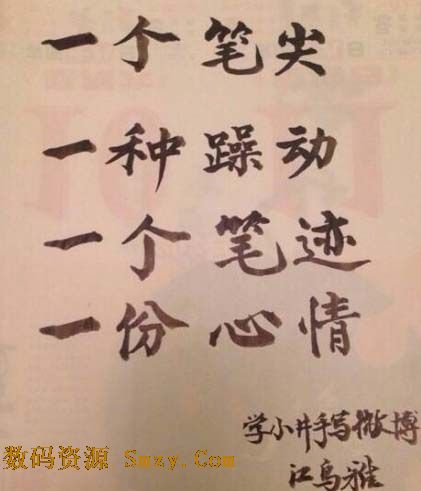 一个笔尖
一种躁动
一个笔迹
一份心情
学小井手写微博
数码资源 Smzy.Com
江鸟雅